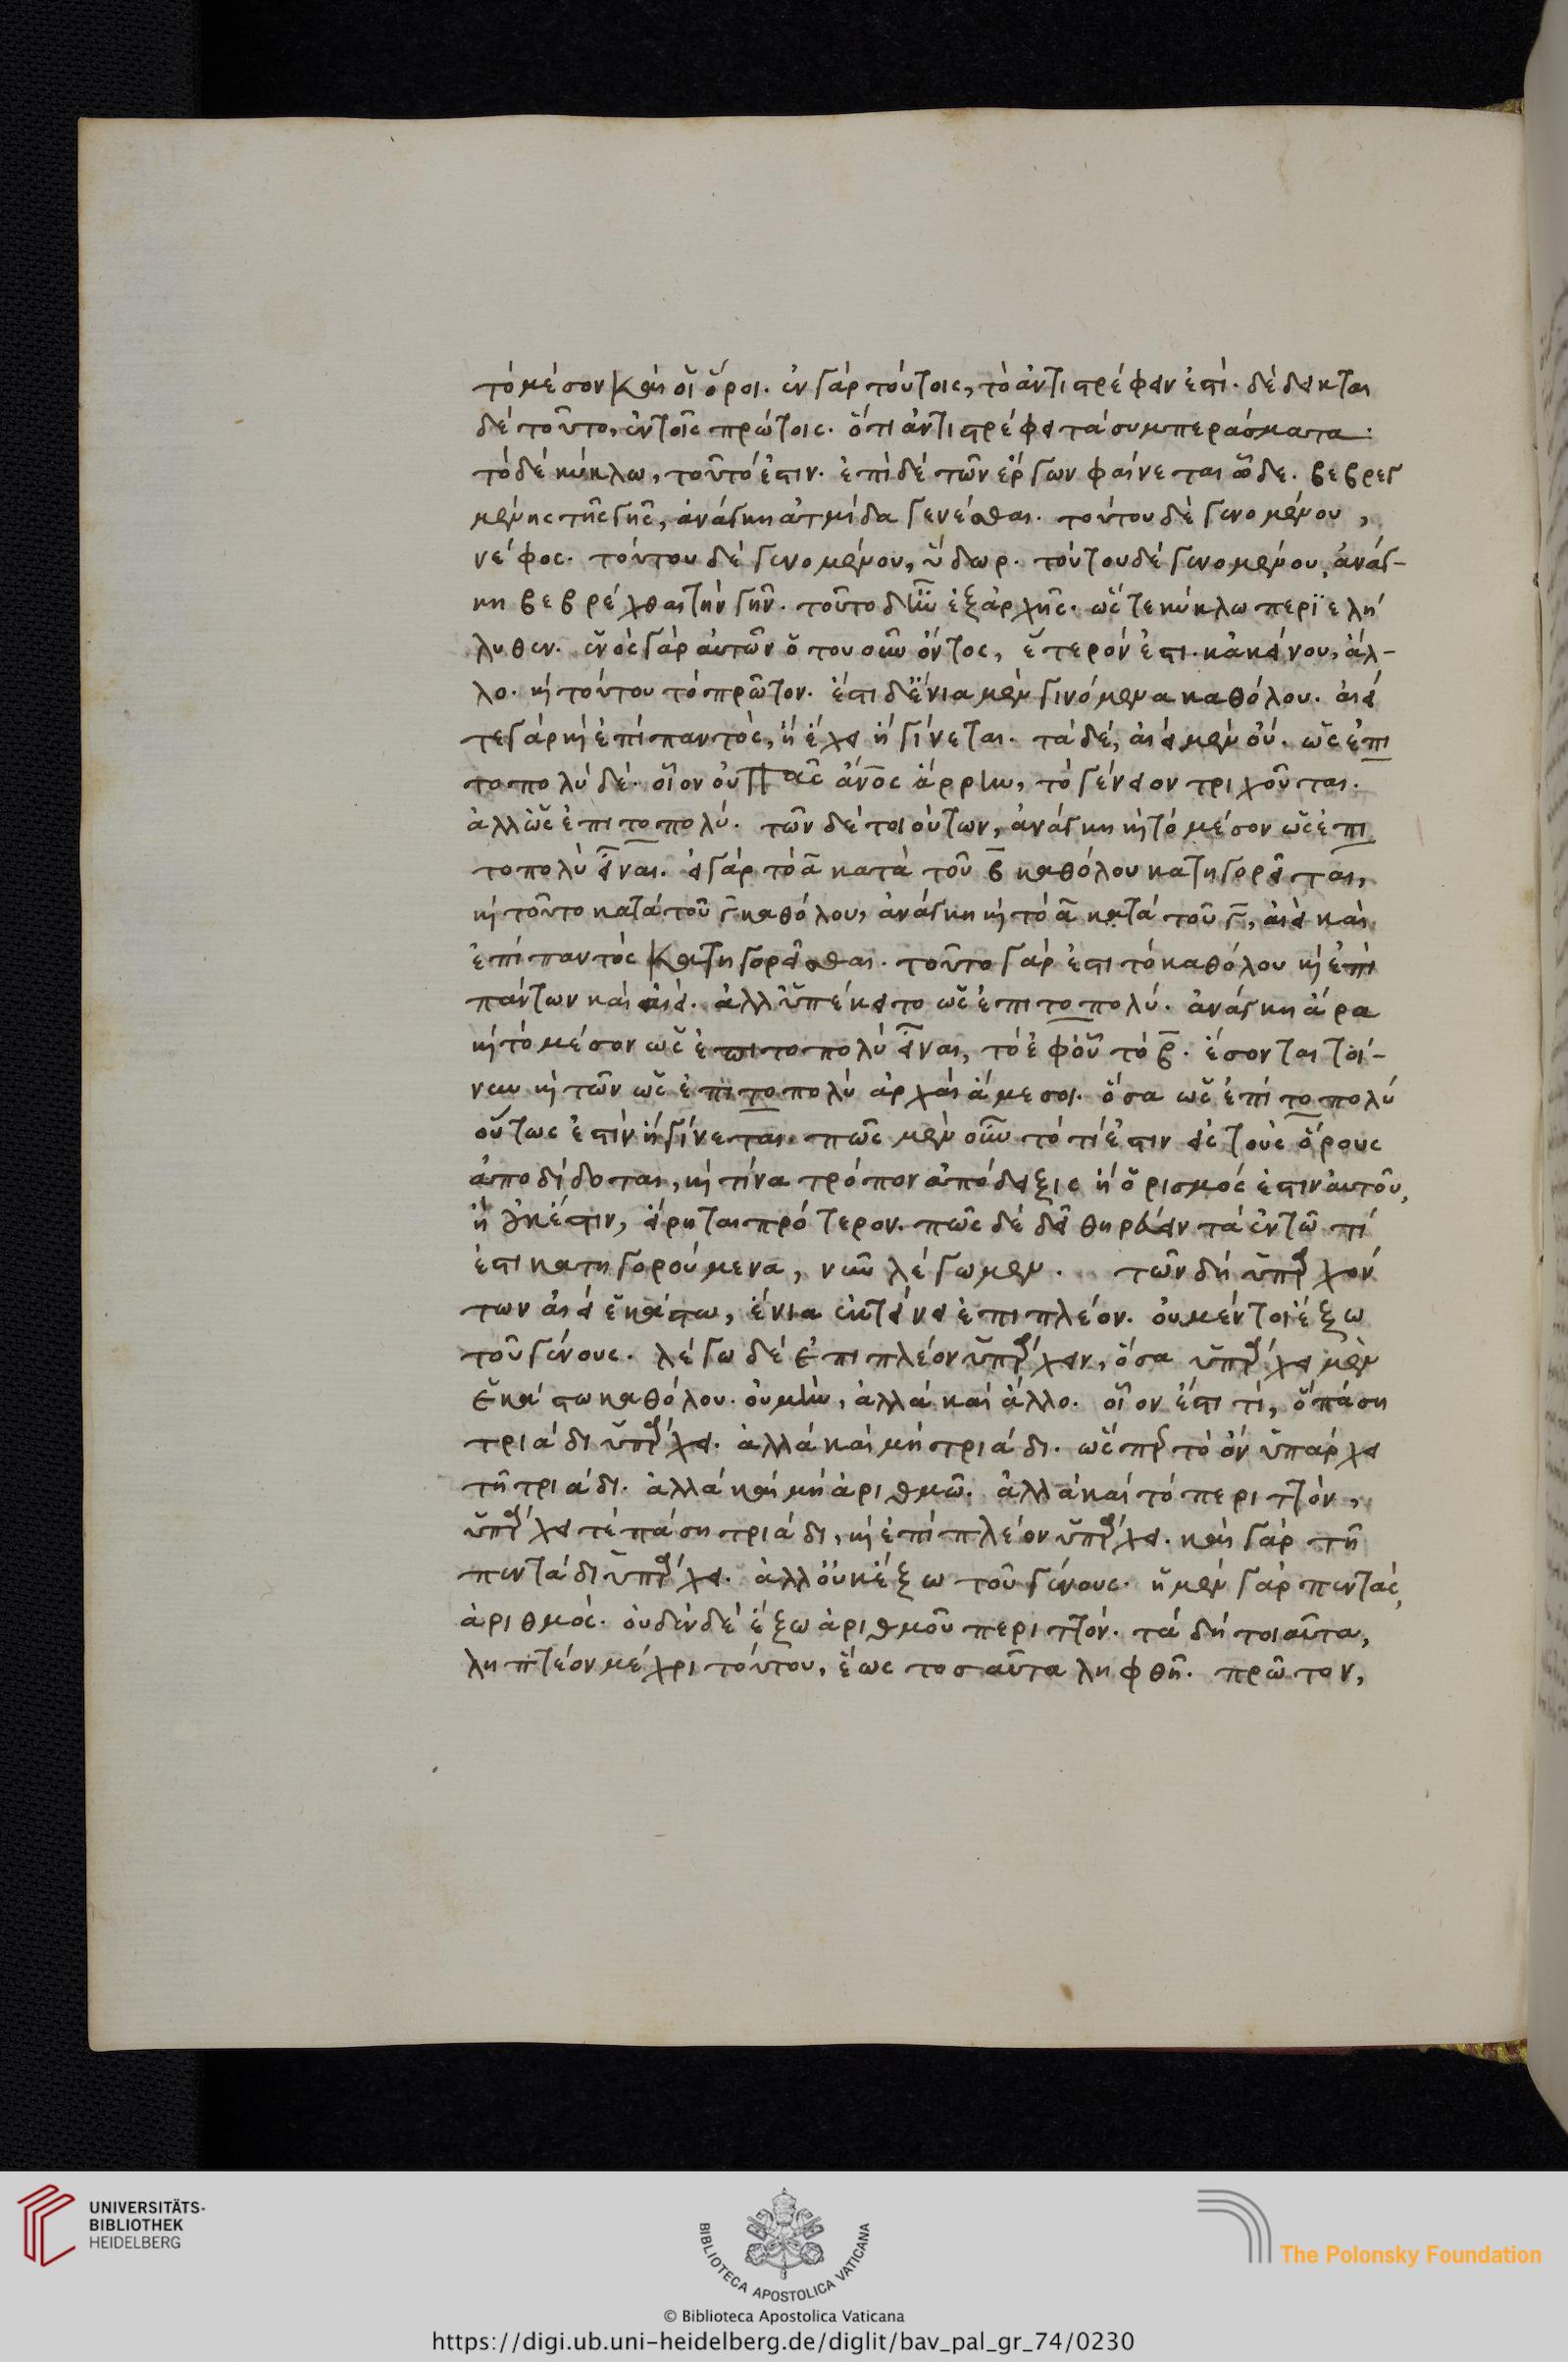 τὸ μέσον καὶ οἱ ὅροι. ἐν γὰρ τούτοις, τὸ ἀντιστρέφειν ἐστί. δέδεικται
δὲ τοῦτο, ἐν τοῖς πρώτοις. ὅτι ἀντιστρέφει τὰ συμπεράσματα.
τὸ δὲ κύκλω, τοῦτό ἐστιν. ἐπὶ δὲ τῶν ἔργων φαίνεται ὧδε. βεβρεγ
μένης τῆς γῆς, ἀνάγκη ἀτμίδα γενέσθαι. τούτου δὲ γενομένου,
νέφος. τούτου δὲ γενομένου, ὕδωρ. τούτου δὲ γενομένου, ἀνάγ-
κη βεβρέχθαι τὴν γῆν. τοῦτο δ' ἦν ἐξ ἀρχῆς. ὥστε κύκλω περϊελή
λυθεν. ἑνὸς γὰρ αὐτῶν ὁτουοῦν ὄντος, ἕτερόν ἐστι. κἀκείνου, ἄλ-
λο. κὶ τούτου τὸ πρῶτον. ἔστι δ' ἔνια μὲν γινόμενα καθόλου. ἀεί
τε γὰρ κὶ ἐπὶ παντὸς, ἢ ἔχει ἢ γίνεται. τὰ δὲ, ἀεὶ μὲν οὔ. ὡς ἐπι
τοπολὺ δέ. οἷον οὐ πᾶς ἄν̅ο̅ς ἄρρην, τὸ γένειον τριχοῦται.
ἀλλ' ὡς ἐπιτοπολύ. τῶν δὲ τοιούτων, ἀνάγκη κὶ τὸ μέσον ὡς ἐπι
τοπολὺ εἶναι. εἰ γὰρ τὸ α̅ κατὰ τοῦ β̅ καθόλου κατηγορεῖται,
κὶ τοῦτο κατὰ τοῦ γ̅ καθόλου, ἀνάγκη κὶ τὸ α̅ κατὰ τοῦ γ̅, ἀεὶ καὶ
ἐπὶ παντὸς κατηγορεῖσθαι. τοῦτο γάρ ἐστι τὸ καθόλου κὶ ἐπὶ
πάντων καὶ ἀεί. ἀλλ' ὑπέκειτο ὡς ἐπιτοπολύ. ἀνάγκη ἄρα
κὶ τὸ μέσον ὡς ἐπιτοπολὺ εἶναι, τὸ ἐφ' οὗ τὸ β̅. ἔσονται τοί-
νυν κὶ τῶν ὡς ἐπιτοπολὺ ἀρχαὶ ἄμεσοι. ὅσα ὡς ἐπὶ τοπολὺ
οὕτως ἐστὶν ἢ γίνεται. πῶς μὲν οὖν τὸ τί ἐστιν εἰς τοὺς ὅρους
ἀποδίδοται, κὶ τίνα τρόπον ἀπόδειξις ἢ ὁρισμός ἐστιν αὐτοῦ,
ἢ οὐκ ἔστιν, εἴρηται πρότερον. πῶς δὲ δεῖ θηρεύειν τὰ ἐν τῶ τί
ἐστι κατηγορούμενα, νῦν λέγωμεν. τῶν δὴ ὑπαρχόν
των ἀεὶ ἑκάστω, ἔνια ἐκτείνει ἐπιπλέον. οὐ μέντοι ἔξω
τοῦ γένους. λέγω δὲ ἐπιπλέον ὑπάρχειν, ὅσα ὑπάρχει μὲν
ἑκάστω καθόλου. οὐ μὴν, ἀλλὰ καὶ ἄλλο. οἷον ἔστι τί, ὃ πάση
τριάδι ὑπάρχει. ἀλλὰ καὶ μὴ τριάδι. ὥσπερ τὸ ὂν ὑπάρχει
τῆ τριάδι. ἀλλὰ καὶ μὴ ἀριθμῶ. ἀλλὰ καὶ τὸ περιττὸν,
ὑπάρχει τὲ πάση τριάδι, κὶ ἐπὶ πλέον ὑπάρχει. καὶ γὰρ τῆ
πεντάδι ὑπάρχει. ἀλλ' οὐκ ἔξω τοῦ γένους. ἡ μὲν γὰρ πεντὰς,
ἀριθμός. οὐδὲν δὲ ἔξω ἀριθμοῦ περιττόν. τὰ δὴ τοιαῦτα,
ληπτέον μέχρι τούτου, ἕως τοσαῦτα ληφθῆ. πρῶτον,
UNIVERSITÄTS-
BIBLIOTHEK
HEIDELBERG
BIBLIOTECA APOSTOLICA VATICANA
The Polonsky Foundation
© Biblioteca Apostolica Vaticana
https://digi.ub.uni-heidelberg.de/diglit/bav_pal_gr_74/0230